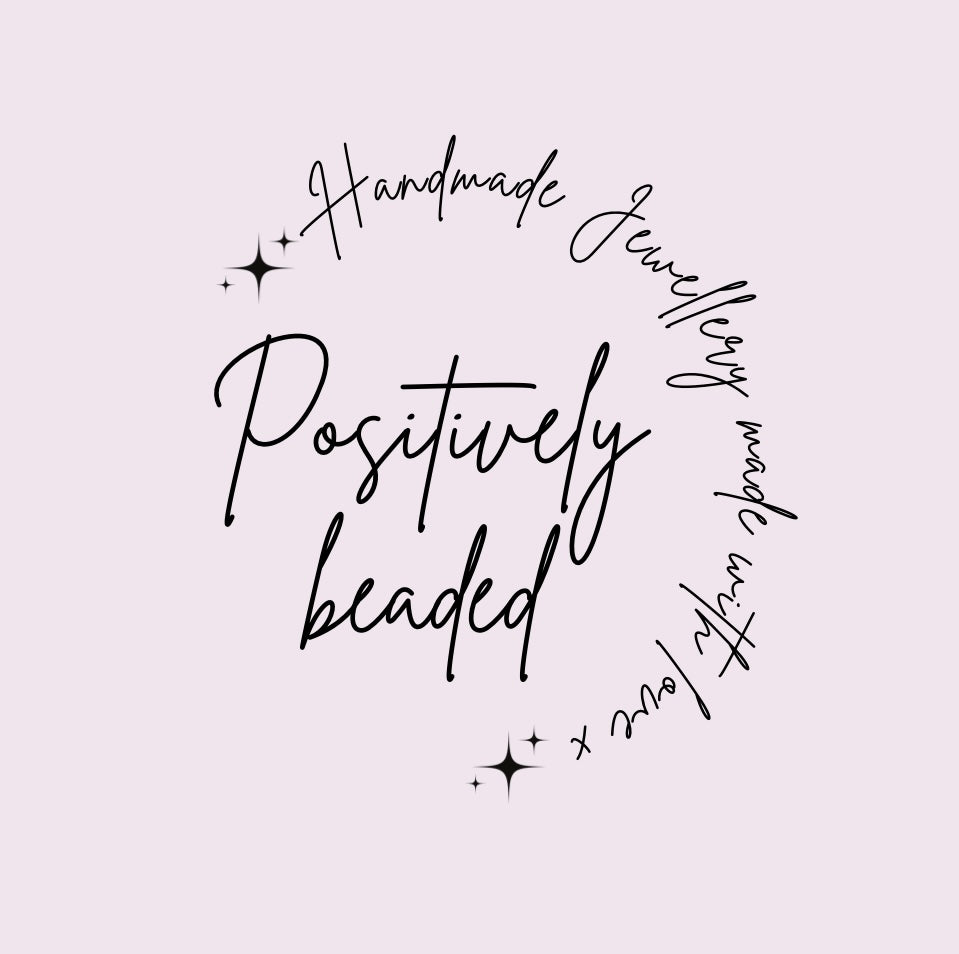 Handmade Jewellery made with love x
Positively
beaded